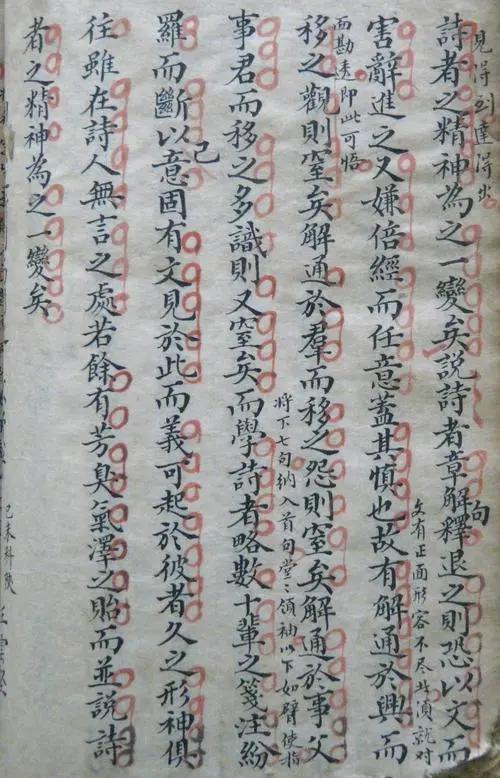 見得到達得出
詩者之精神為之一變矣説詩者章解釋退之則恐以文而
句
文有正面形容不尽者須就对
害辭進之又嫌倍經而任意蓋其慎也故有解通於興而
面勘透即此可悟
移之觀則窒矣解通於羣而移之怨則窒矣解通於事父
將下七句納入首句堂々領袖以下如臂使指
事君而移之多識則又窒矣而學詩者略數十輩之箋注紛
羅而斷以意固有文見於此而義可起於彼者久之形神俱
己
往雖在詩人無言之處若餘有芳臭氣澤之貽而並説詩
者之精神為之一變矣
己未科